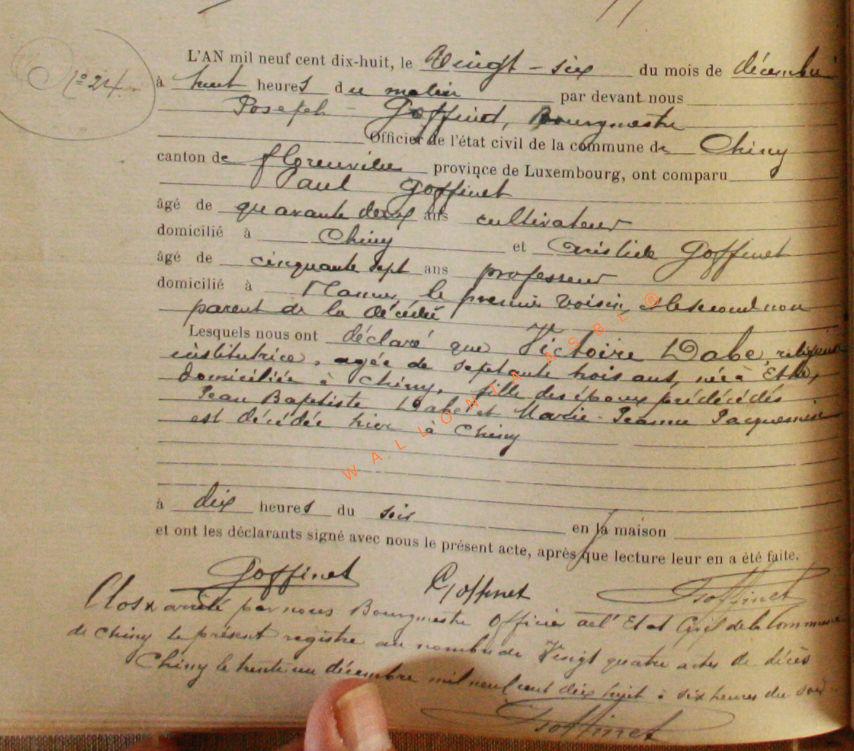 N° 24.
L'AN mil neuf cent dix-huit, le Vingt-six du mois de décembre
à huit heures du matin par devant nous
Joseph Goffinet, Bourgmestre
Officier de l'état civil de la commune de Chiny
canton de florenville province de Luxembourg, ont comparu
Paul Goffinet
âgé de quarante deux ans cultivateur
domicilié à Chiny et Aristide Goffinet
âgé de cinquante sept ans professeur
domicilié à Namur, le premier voisin, le second non
parent de la décédée
Lesquels nous ont déclaré que Victoire Habe, religieuse
institutrice, agée de septante trois ans, née à Ethe,
domiciliée à Chiny, fille des époux prédécédés
Jean Baptiste et Marie-Jeanne Jacquemin
est décédée hier à Chiny
à dix heures du soir en la maison
et ont les déclarants signé avec nous le présent acte, après que lecture leur en a été faite.
Goffinet Goffinet Goffinet
Clos & arrêté par nous Bourgmestre Officier de l'Etat Civil de la Commune
de Chiny le présent registre au nombre de Vingt quatre actes de décès
Chiny le trente un décembre mil neuf cent dix huit à six heures du soir.
Goffinet
WALLONIA ASBL ©